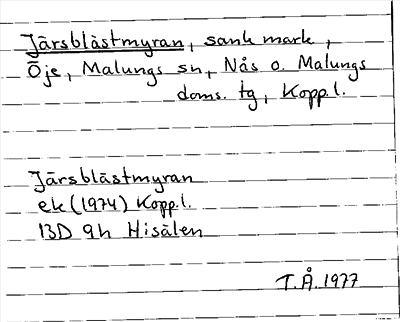 Järsblästmyran, sank mark,
Öje, Malungs sn, Nås o. Malungs
doms. tg, Kopp.l.
Järsblästmyran
ek (1974) Kopp.l.
13D 9h Hisälen
T.Å. 1977